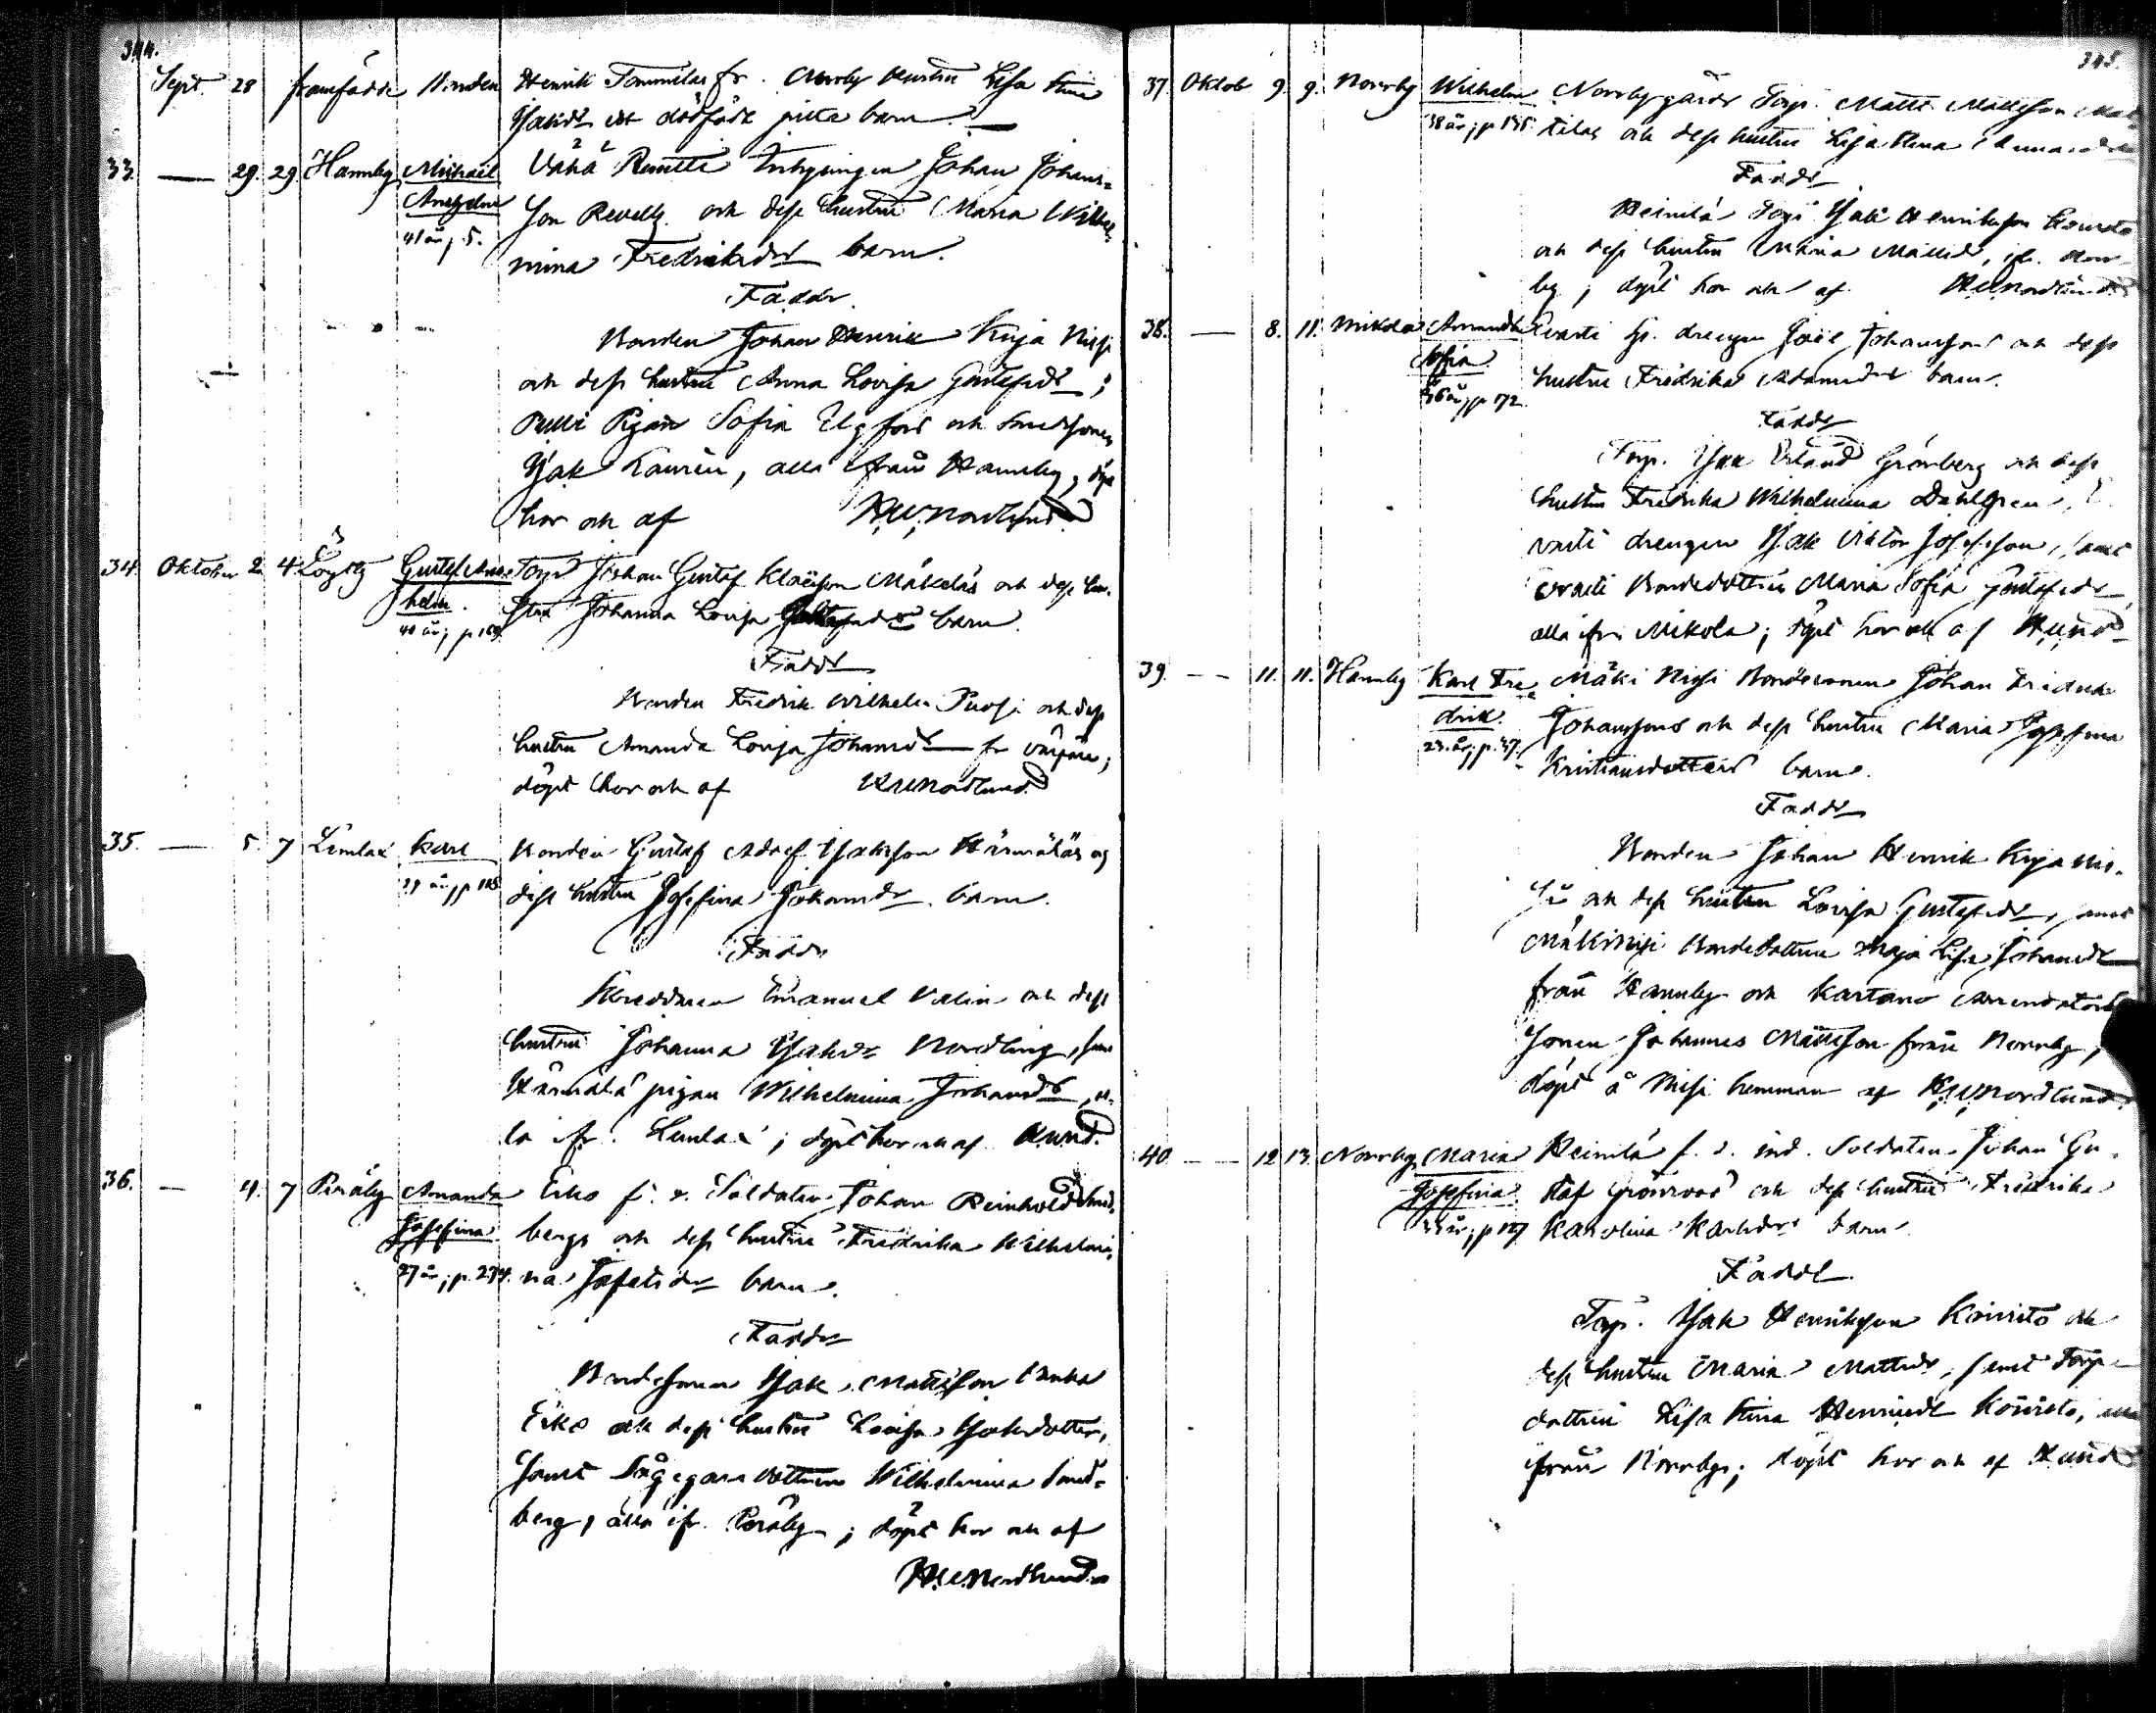 344.
Sept. 28 framfödde Bonden Henrik Tommilas fr. Norrby hustru Lisa Stina
Isaksdr ett dödfödt barn.
33. — 29. 29. Hannby Michael Vähä Rwelli Inhysingen Johan Johans-
Anshelm son Revell och dess hustru Maria Wilhel-
41 år; p. 5. mina Fredriksdrs barn.
Faddr.
Bonden Johan Henrik Kirja Nissi
och dess hustru Anna Lovisa Gustafsdr;
Pigan Sofia Elgfors och
Isak Laurén, alla från Hannby; döpt
hos och af KWNordlund
34. Oktober 2 4 Gustaf Ans- Torp. Johan Gustaf Mäkeläs och dess hu-
helm. stru Johanna Lovisa barn.
40 år; p 164.
Faddr
Bonden Fredrik Wilhelm och dess
hustru Amanda Lovisa Johansdr fr
döpt hos och af KWNordlund.
35. — 5. 7 Lemlax Karl Bonden Gustaf Adolf Isaksson Härmäläs och
29 år, p 108 dess hustru Josefina Johansdrs barn.
Faddr
Skreddaren Emanuel Valin och dess
hustru Johanna Isaksdr Nordling, samt
Härmälä pigan Wilhelmina Johansdr, al-
la ifr. Lemlax; döpt hos och af KWNd.
36. — 4. 7 Peräby Amanda Eiko f. d. Soldaten Johan Reinhold Sand-
Josefina. bergs och dess hustru Fredrika Wilhelmi-
27 år; p. 234. na Josefsdrs barn.
Faddr
Bondesonen Isak Mattsson
Eiko och dess hustru Lovisa Isaksdotter,
samt Sågegaredottren Wilhelmina Sand-
berg, alla ifr. Peräby; döpt hos och af
KWNordlund
345.
37. Oktob 9. 9. Norrby Wilhelm Norrbygårds Torp. Matts Mattsson Mat-
38 år; p 135. tilas och dess hustru Lisa Stina
Faddr
Heinilä Torp. Isak Henriksson Koivisto
och dess hustru Maria Mattsdr, ifr. Norr-
by; döpt hos och af KWNordlund
38. — 8. 11. Mikola Amanda Evarti hs. drengen Joel Johanssons och dess
Sofia. hustru Fredrika Adamsdrs barn.
36 år, p 172.
Faddr
Torp. Isak Erland Grönberg och dess
hustru Fredrika Wilhelmina Dahlgren, E
varti drengen Isak Viktor Josefsson, samt
Evarti Bondedottren Maria Sofia Gustafsdr
alla ifr. Mikola; döpt hos och af KWNd
39. — 11. 11. Hannby Karl Fre- Mäki Nissi Bondesonen Johan Fredrik
drik. Johanssons och dess hustru Maria Josefina
23 år; p. 37. Kristiansdotters barn.
Faddr
Bonden Johan Henrik Kirja Nis-
si och dess hustru Lovisa Gustafsdr, samt
Mäkinissi Bondedottren Maja Lisa Johansdr
från Hannby och Kartano Arrendators
sonen Johannes Mattsson från Norrby;
döpt å Nissi hemman af KWNordlund.
40. — 12 13. Norrby Maria Heinilä f. d. ind. Soldaten Johan Gu-
Josefina. staf Grönroos och dess hustru Fredrika
33 år; p 127 Karolina Karlsdrs barn.
Faddr
Torp. Isak Henriksson Koivisto och
dess hustru Maria Mattsdr, samt Torp-
dottren Lisa Stina Henriksdr Koivisto,
ifrån Norrby; döpt hos och af KWNd